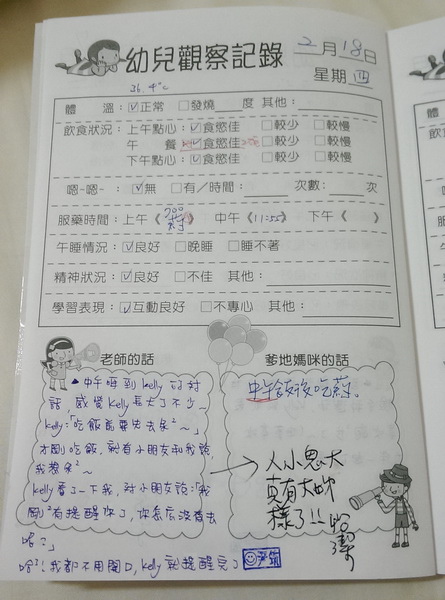 幼兒觀察記錄 2月18日
星期四
36.4°c
體 溫:☑正常 □發燒 度 其他:
飲食狀況:上午點心:☑食慾佳 □較少 □較慢
午 餐:☑食慾佳 □較少 □較慢
下午點心:☑食慾佳 □較少 □較慢
嗯~嗯~ :☑無 □有/時間: 次數: 次
服藥時間:上午《 》 中午《11:55》 下午《 》
午睡情況:☑良好 □晚睡 □睡不著
精神狀況:☑良好 □不佳 其他:
學習表現:☑互動良好 □不專心 其他:
老師的話
▲中午晤到kelly的對
話,感覺kelly長大了不少~
kelly:「吃飯前要先去
才剛吃飯,就有小朋友和我說,
我想
kelly看了一下我,對小朋友說:「我
剛剛有提醒你了,你怎麼沒有去
哈²!我都不用開口,kelly就提醒完了
爹地媽咪的話
中午飯後吃藥。
→人小鬼大
真有大姊
樣了!!